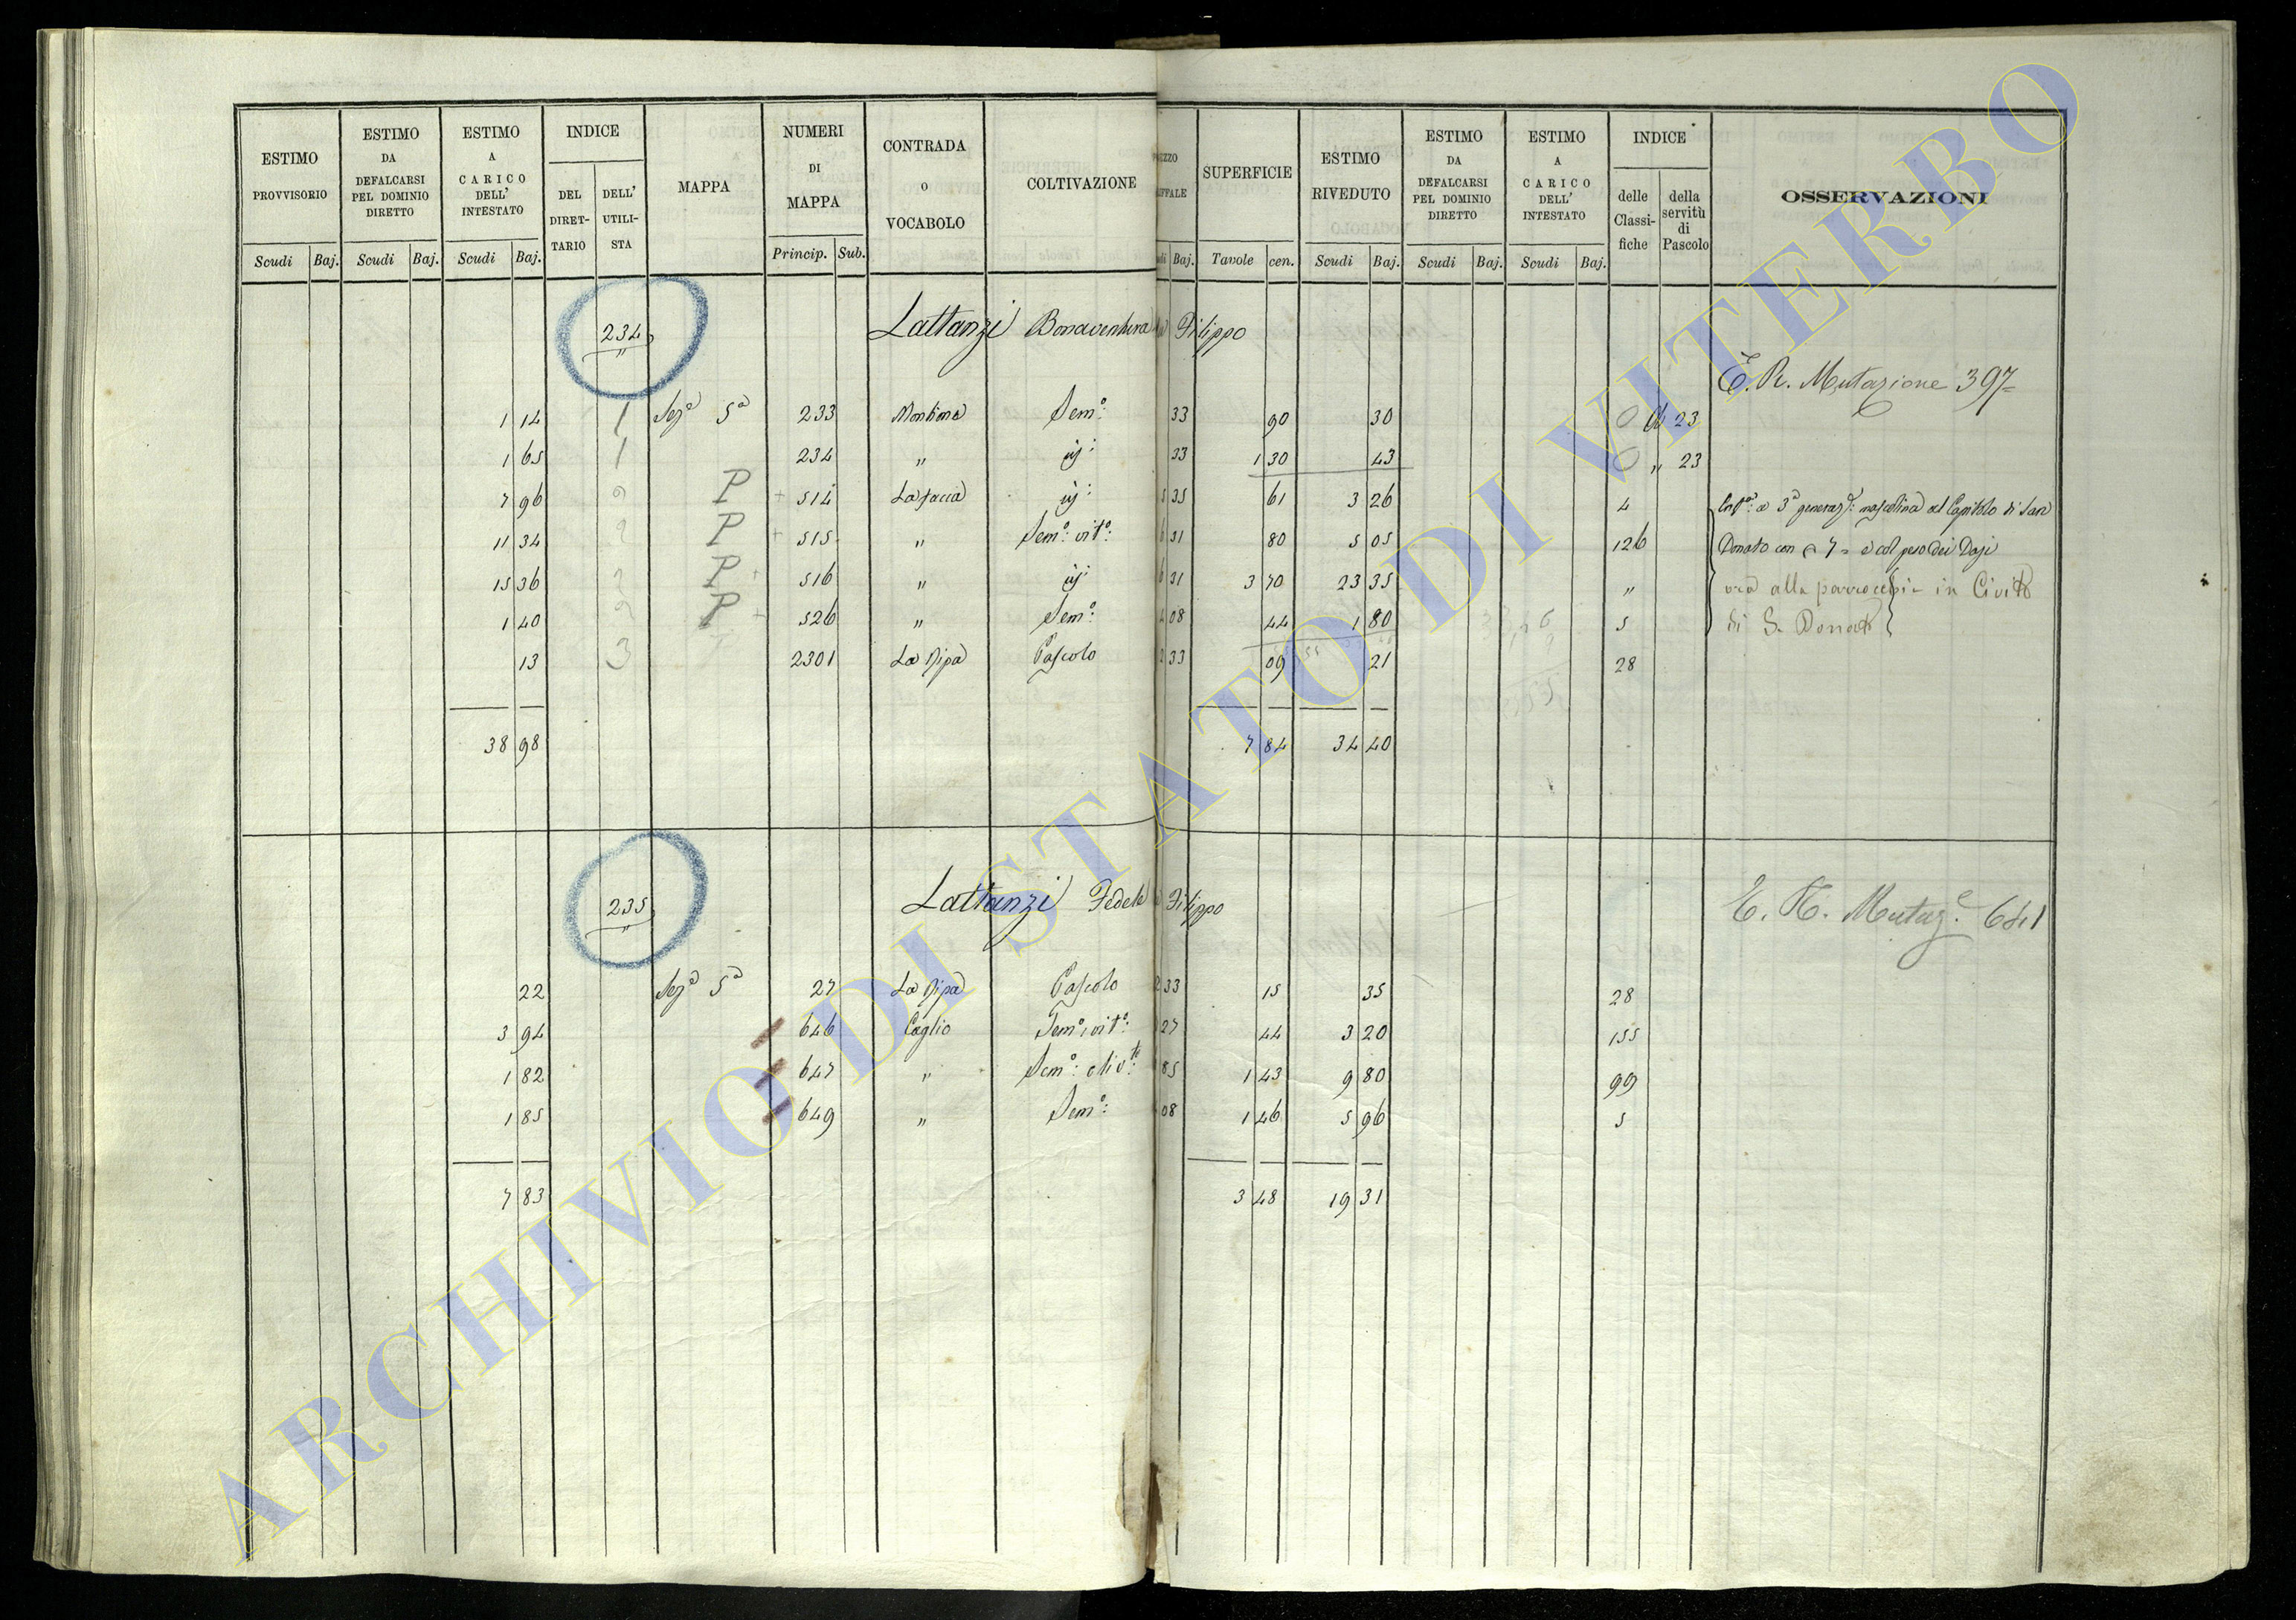 ESTIMO PROVVISORIO Scudi Baj. ESTIMO DA DEFALCARSI PEL DOMINIO DIRETTO Scudi Baj. ESTIMO A CARICO DELL' INTESTATO Scudi Baj. INDICE DEL DIRET-TARIO DELL' UTILI-STA MAPPA NUMERI DI MAPPA Princip. Sub. CONTRADA O VOCABOLO COLTIVAZIONE
EZZO IFFALE di Baj. SUPERFICIE Tavole cen. ESTIMO RIVEDUTO Scudi Baj. ESTIMO DA DEFALCARSI PEL DOMINIO DIRETTO Scudi Baj. ESTIMO A CARICO DELL' INTESTATO Scudi Baj. INDICE delle Classi-fiche della servitù di Pascolo OSSERVAZIONI
234 Lattanzi Bonaventura Filippo
E. R. Mutazione 397
1 14 1 Sezª 5ª 233 Semº: 33 90 30 0 23
1 65 1 234 " 33 1 30 43 0 " 23
7 96 2 P + 514 35 61 3 26 4
11 34 2 P + 515 " Semº: vitº: 31 80 5 05 126 Donato con 7 e col peso dei Dazi
15 36 2 P + 516 " 31 3 70 23 35 " ora alla parrocchia in Civita
1 40 2 P + 526 " Semº: 08 44 1 80 5 di S. Donato
13 3 2301 La Ripa Pascolo 33 09 21 28
38 98 7 84 34 40
235 Lattanzi Fedele Filippo
Mutazᵉ. 641
22 Sezª 5ª 27 La Ripa Pascolo 33 15 35 28
3 94 646 Caglio Semº: vitº: 27 44 3 20 155
1 82 647 " Semº: olivᵗᵒ: 85 1 43 9 80 99
1 85 649 " Semº: 08 1 46 5 96 5
7 83 3 48 19 31
ARCHIVIO DI STATO DI VITERBO